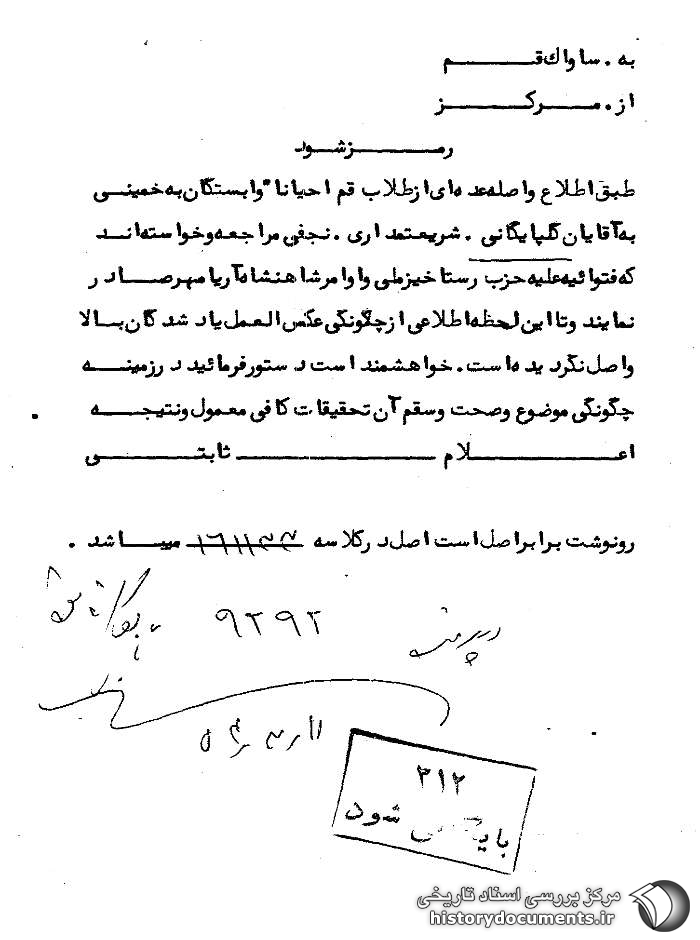 به . ساواك قم
از . مركز
رمز شود
طبق اطلاع واصله عده ای از طلاب قم احیانا" وابستگان به خمینی
به آقایان گلپایگانی . شریعتمداری . نجفی مراجعه و خواسته اند
که فتوائیه علیه حزب رستاخیز ملی و اوامر شاهنشاه آریامهر صادر
نمایند و تا این لحظه اطلاعی از چگونگی عکس العمل یاد شدگان بالا
واصل نگردیده است . خواهشمند است دستور فرمائید در زمینه
چگونگی موضوع و صحت و سقم آن تحقیقات کافی معمول و نتیجه
اعلام ثابتی
رونوشت برابر اصل است اصل در کلاسه میباشد .
در پرونده ۹۲۹۲ بایگانی شود
۳۱۲
شود
مرکز بررسی اسناد تاریخی
historydocuments.ir